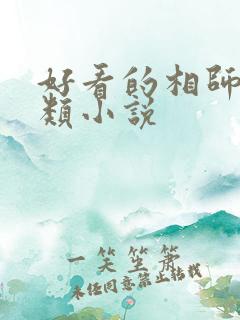 好看的相師
類小說
一笑笙簫
未经同意禁止转载